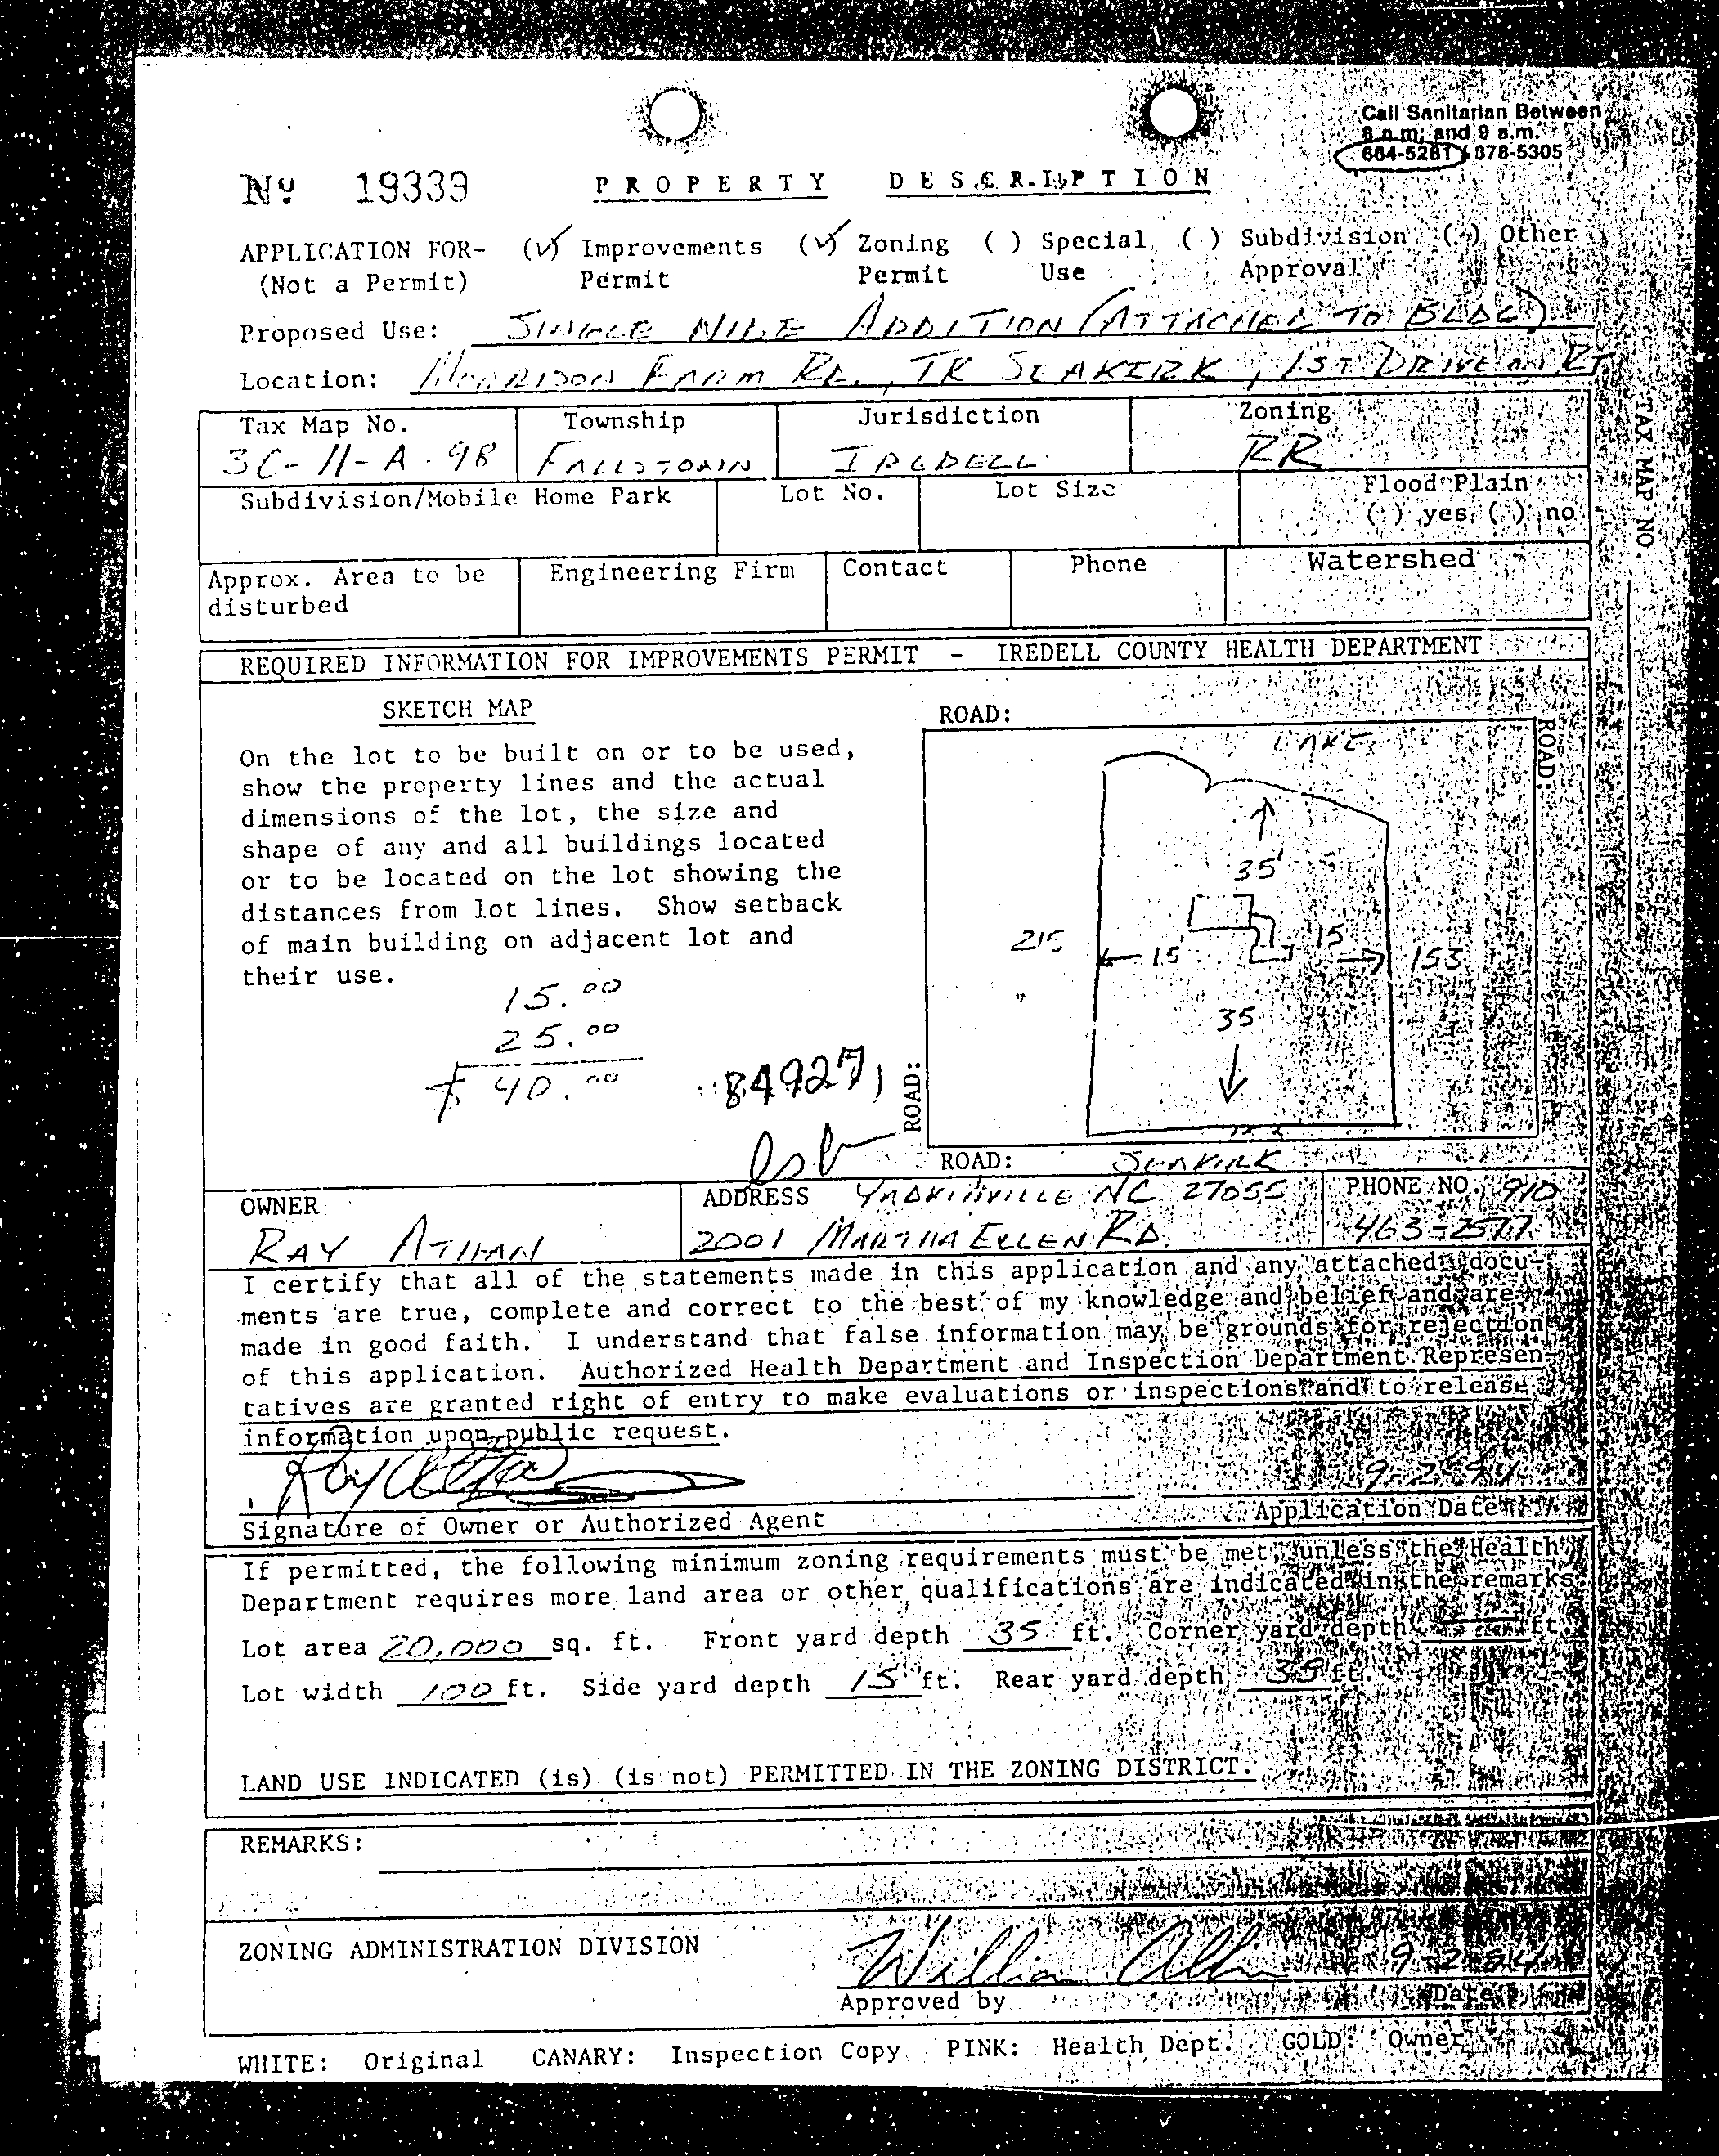 Call Sanitarian Between
8 a.m. and 9 a.m.
664-5281 / 878-5305
Nº 19339 PROPERTY DESCRIPTION
APPLICATION FOR- (✓) Improvements (✓) Zoning ( ) Special ( ) Subdivision ( ) Other
(Not a Permit) Permit Permit Use Approval
Proposed Use: SINGLE WIDE ADDITION (ATTACHED TO BLDG)
Location: MORRISON FARM RD., TR SEAKIRK, 1ST DRIVE ON RT
Tax Map No. Township Jurisdiction Zoning
3C-11-A-98 FALLSTOWN IREDELL RR
Subdivision/Mobile Home Park Lot No. Lot Size Flood Plain
( ) yes ( ) no
Approx. Area to be Engineering Firm Contact Phone Watershed
disturbed
TAX MAP NO.
REQUIRED INFORMATION FOR IMPROVEMENTS PERMIT - IREDELL COUNTY HEALTH DEPARTMENT
SKETCH MAP
On the lot to be built on or to be used,
show the property lines and the actual
dimensions of the lot, the size and
shape of any and all buildings located
or to be located on the lot showing the
distances from lot lines. Show setback
of main building on adjacent lot and
their use.
15.00
25.00
$ 40.00
84927
ROAD:
ROAD:
LAKE
35'
215 15' 15 153
35
ROAD:
ROAD: SEAKIRK
OWNER ADDRESS YADKINVILLE NC 27055 PHONE NO. 910
RAY ATHAN 2001 MARTHA ELLEN RD. 463-2577
I certify that all of the statements made in this application and any attached docu-
ments are true, complete and correct to the best of my knowledge and belief and are
made in good faith. I understand that false information may be grounds for rejection
of this application. Authorized Health Department and Inspection Department Represen-
tatives are granted right of entry to make evaluations or inspections and to release
information upon public request.
9-2-94
Signature of Owner or Authorized Agent Application Date
If permitted, the following minimum zoning requirements must be met, unless the Health
Department requires more land area or other qualifications are indicated in the remarks
Lot area 20,000 sq. ft. Front yard depth 35 ft. Corner yard depth ft.
Lot width 100 ft. Side yard depth 15 ft. Rear yard depth 35 ft.
LAND USE INDICATED (is) (is not) PERMITTED IN THE ZONING DISTRICT.
REMARKS:
ZONING ADMINISTRATION DIVISION William Allin 9-2-94
Approved by Date
WHITE: Original CANARY: Inspection Copy PINK: Health Dept. GOLD: Owner